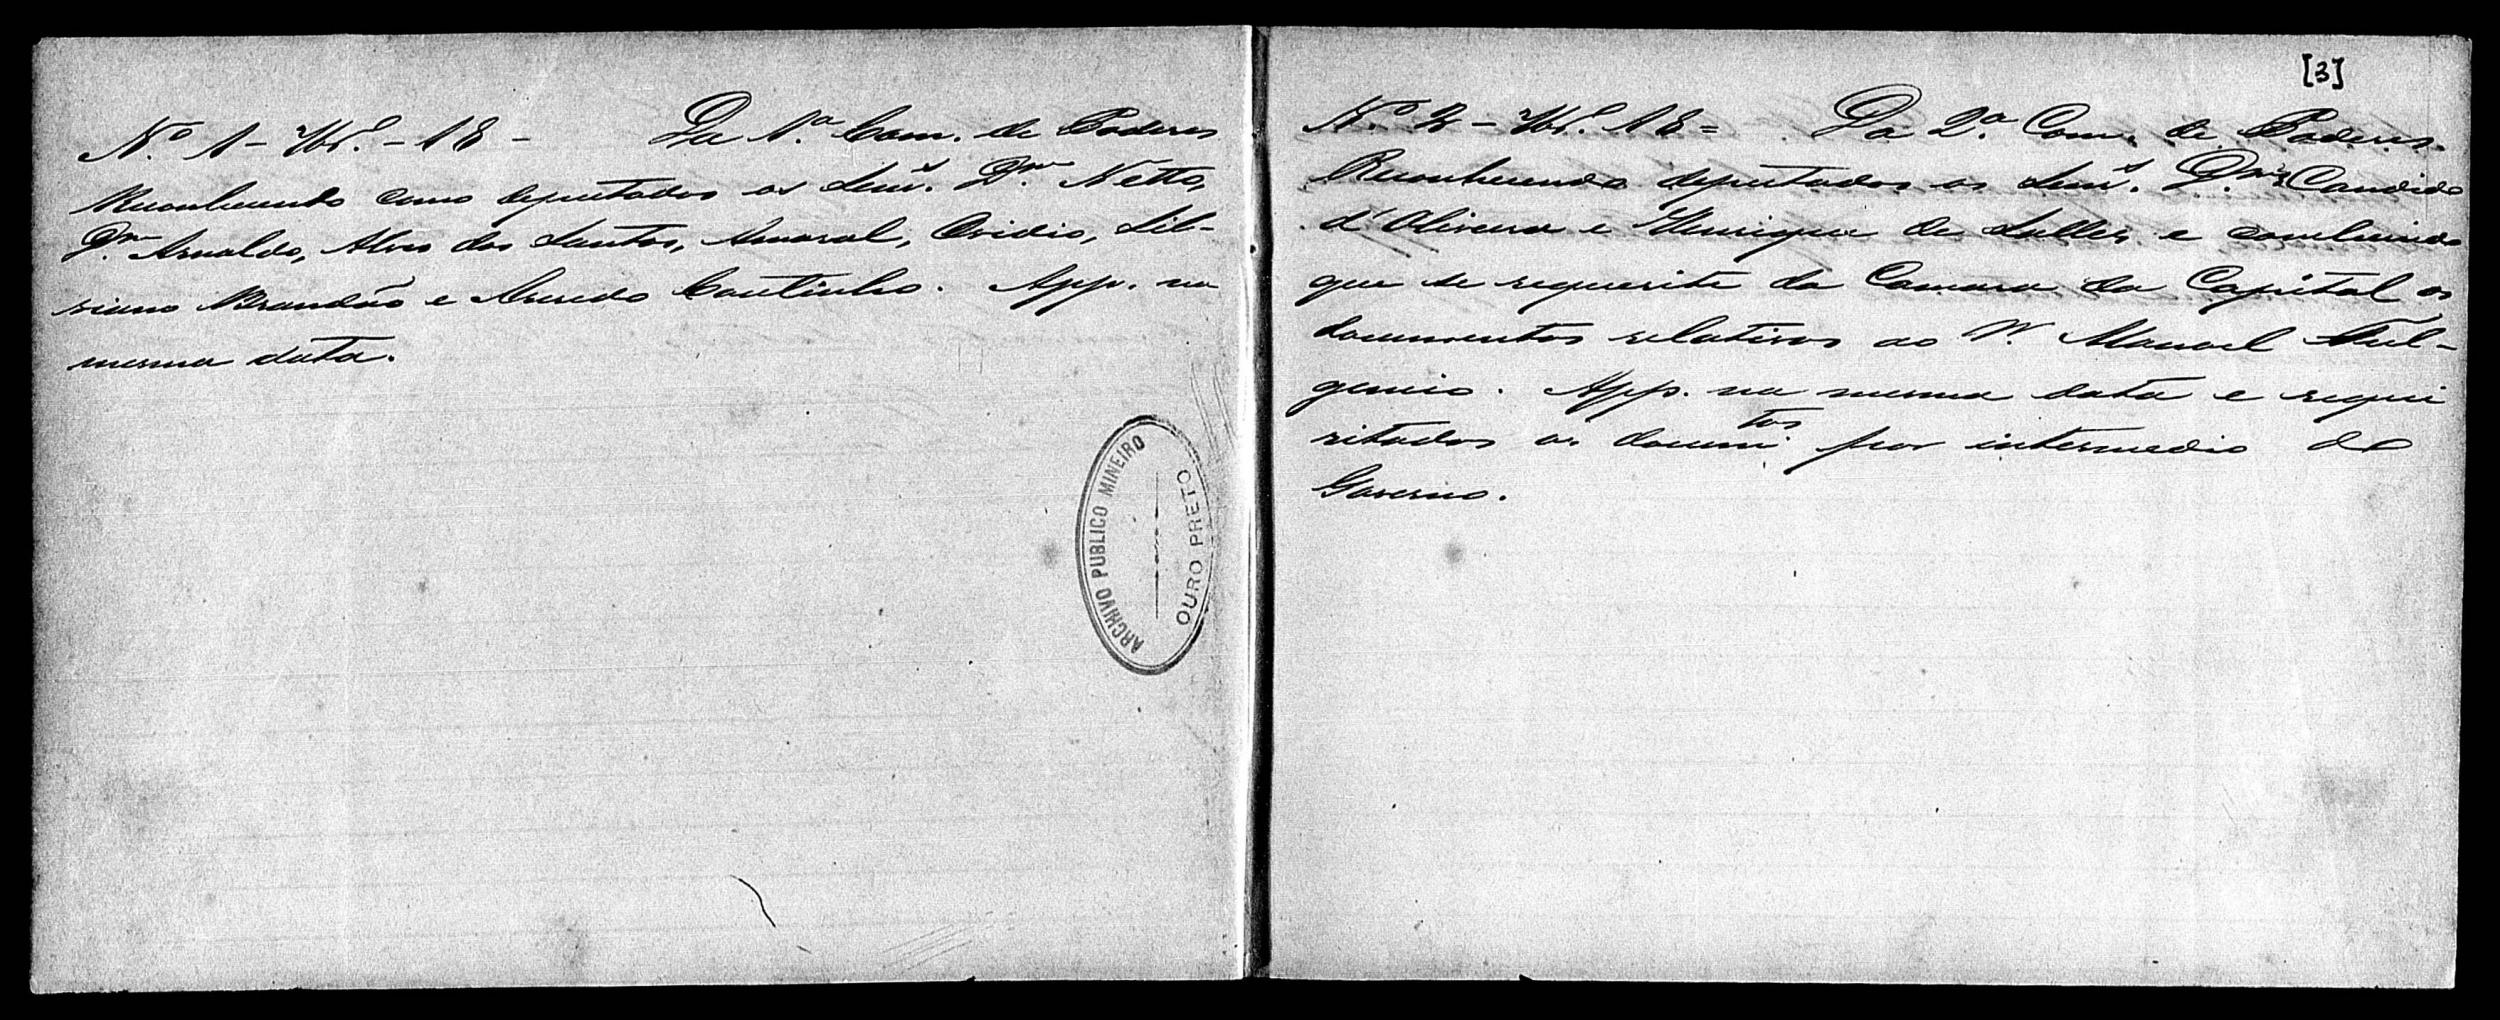 N.º 1 - 7br.º - 18 - Da 1.ª Com. de Poderes
Reconhecendo como deputados os Senr.s Dr. Netto,
Dr. Arnaldo, Alves dos Santos, Amaral, Ovidio, Sil-
viano Brandão e Azeredo Coutinho. App. na
mesma data.
ARCHIVO PUBLICO MINEIRO
OURO PRETO
[3]
N.º 2 - 7br.º 18 = Da 2.ª Com. de Poderes.
Reconhecendo deputados os Senr.s Drs. Candido
d'Oliveira e Henrique de Salles, e concluindo
que se requesite da Camara da Capital os
documentos relativos ao Manoel Ful-
gencio. App. na mesma data e requi
sitados os docum.tos por intermedio do
Governo.